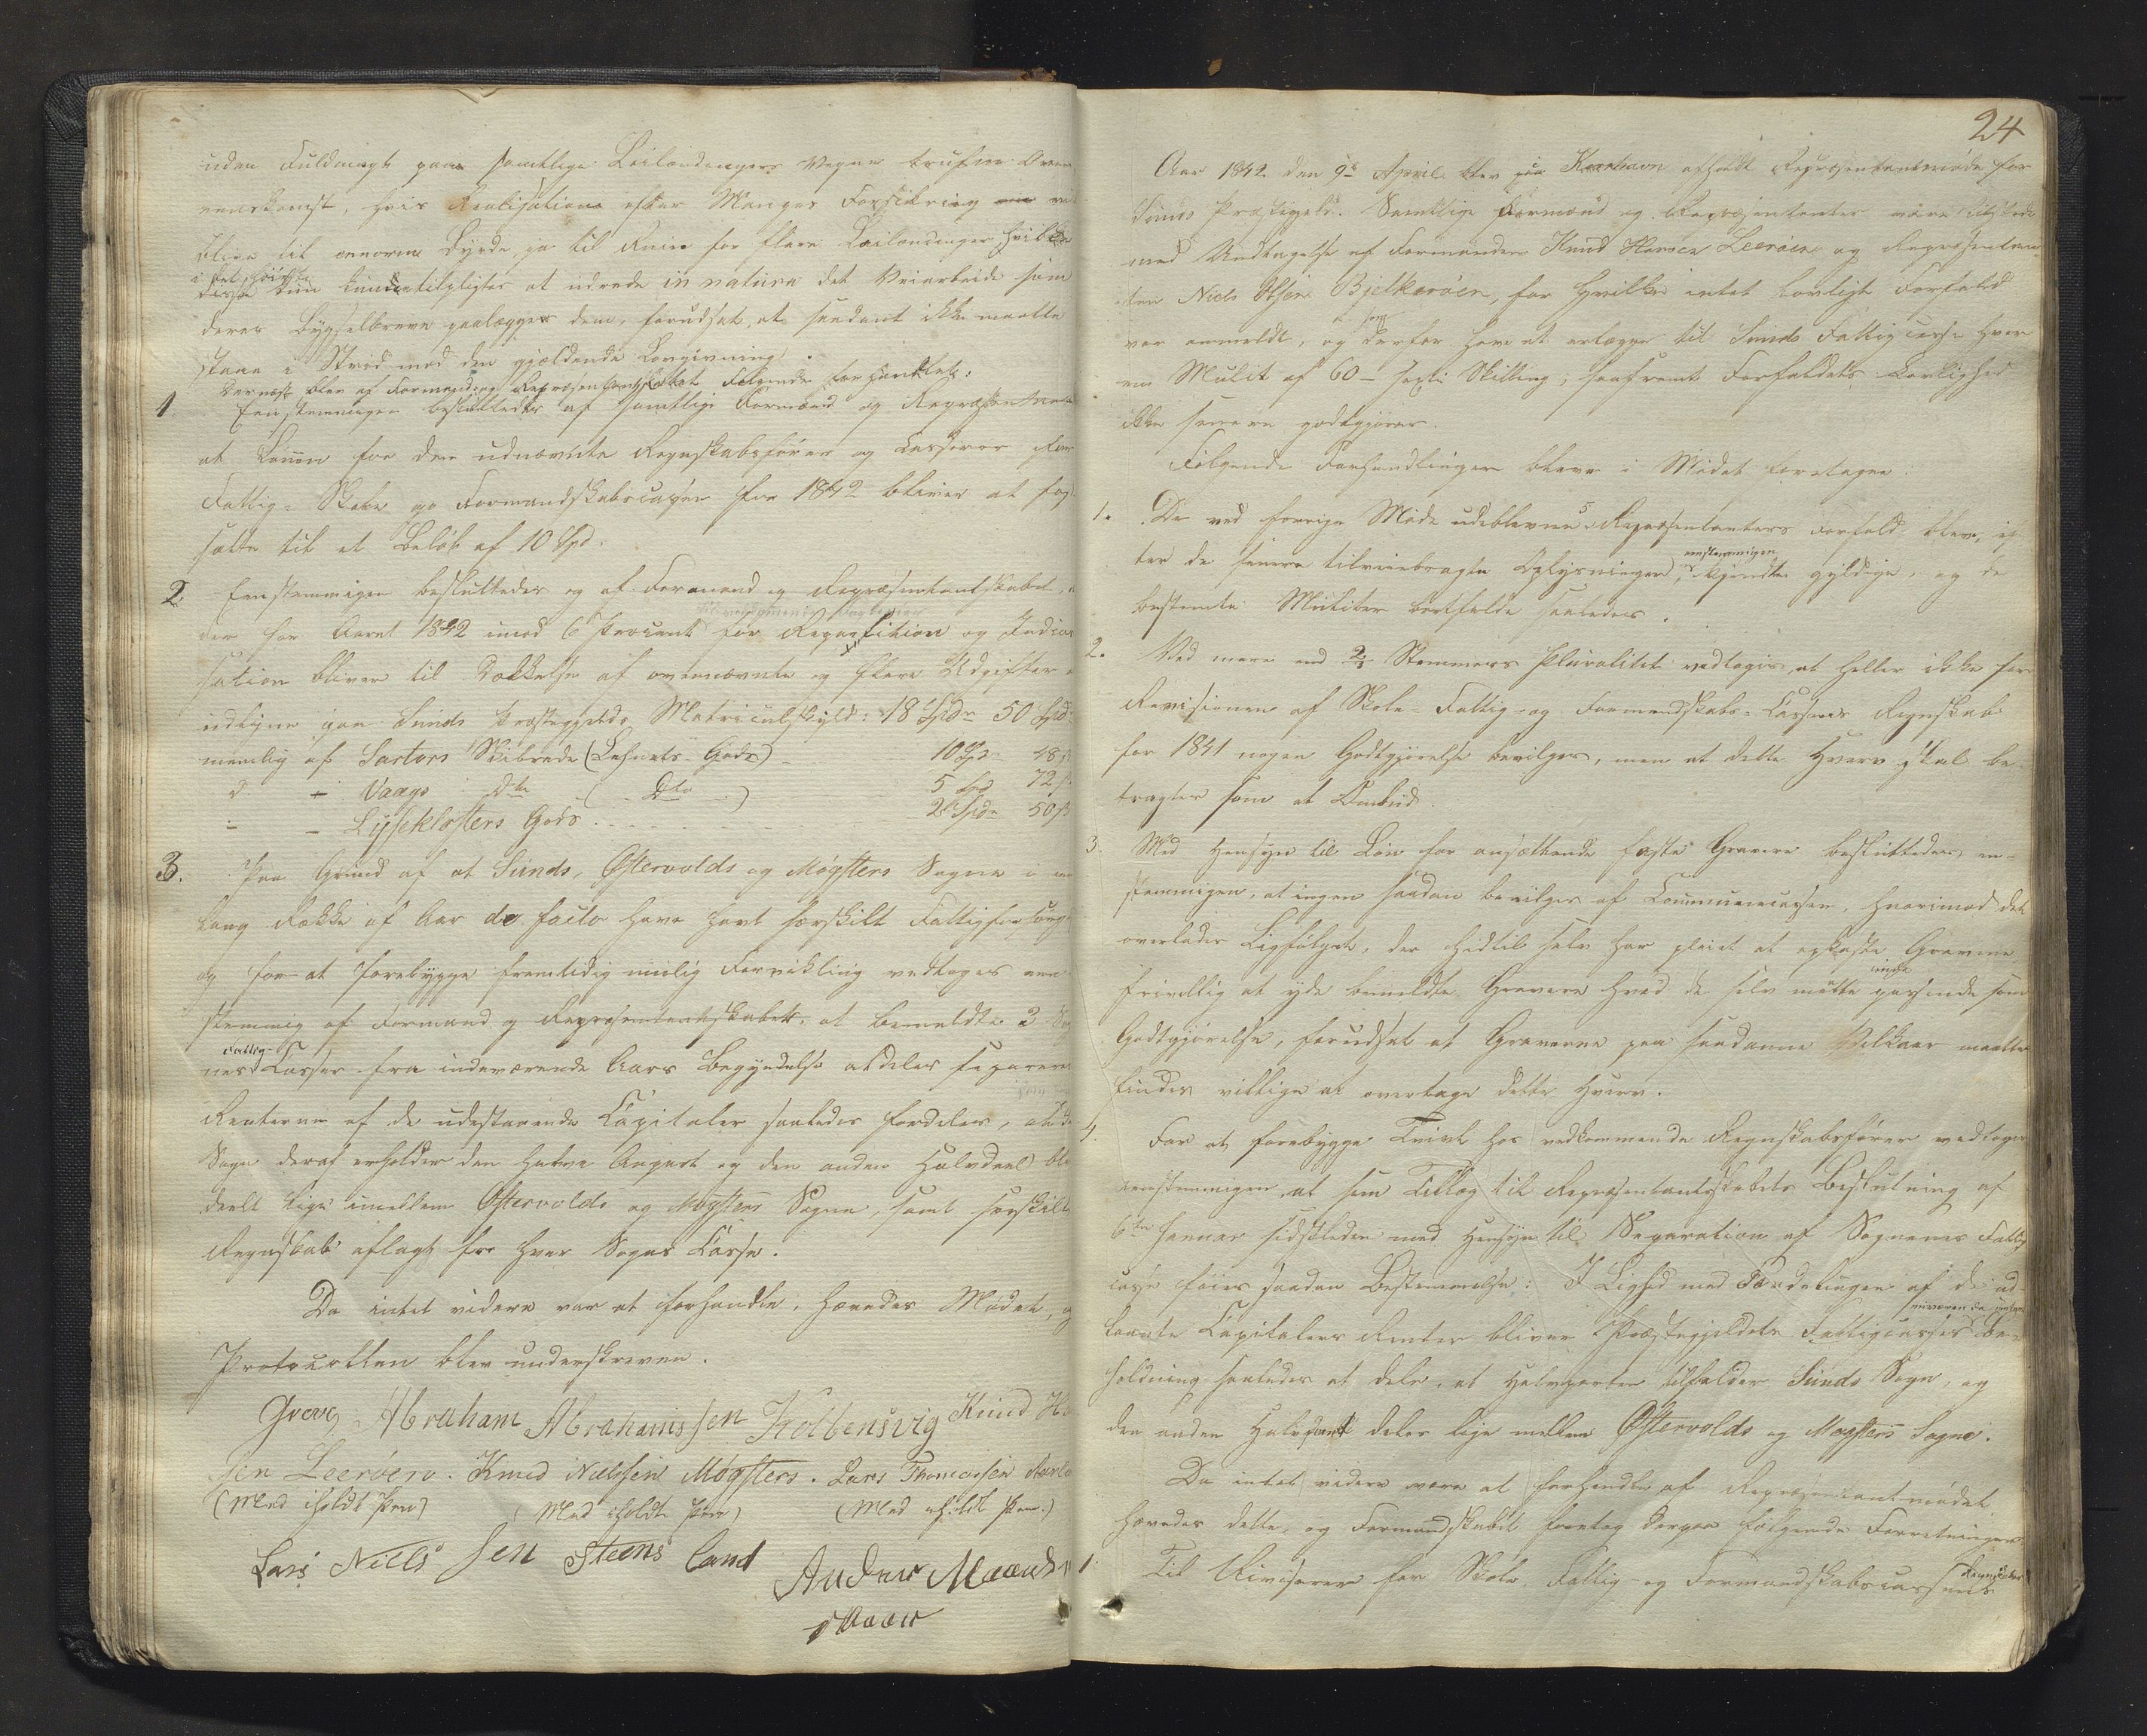 uden Fuldmagt paa samtlige Leilændingers Vegne trufne Over
eenskomst, hvis Realisation efter Manges Forsikring vil
blive til enorme Byrde, ja til Ruin for flere Leilændinger hvilke
i det høieste
disse kun kunde tilpligtes at udrede in natura det Priarbeide som
deres Bygselbreve paalægger dem, forudsat, at saadant ikke maatte
staae i Strid med den gjældende Lovgivning.
Dernæst blev af Formænd og Repræsentantskabet Følgende forhandlet:
1 Eenstemmigen besluttedes af samtlige Formænd og Repræsentanter
at Lønnen for den udnævnte Regnskabsfører og Casserer for
Fattig- Skole og Formandskabscassen for 1842 bliver at fast
sætte til et Beløb af 10 Spd.
2 Eenstemmigen besluttedes og af Formænd og Repræsentantskabet, at
der for Aaret 1842 imod 6 Procent for Repartition og Indcas
sation bliver til Dækkelse af ovennævnte og flere Udgifter at
udligne paa Sunds Præstegjelds Matriculskyld: 18 Spdr 50 ß
nemlig af Sartors Skibrede (Lehnets Gods) 10 Spd 48 ß
d - Vaags Dto (Dto) 5 Spd 72 ß
- - Lyseklosters Gods 2 Spdr 50 ß
3. Paa Grund af at Sunds, Østervolds og Møgsters Sogne i en
lang Række af Aar de facto have havt særskilt Fattigforsørg
og for at forebygge fremtidig mulig Forvikling vedtoges een
stemmig af Formænd og Repræsentantskabet, at bemeldte 3 Sog
Fattig-
nes Casser fra indeværende Aars Begyndelse adskilles separeres
Renterne af de udestaaende Capitaler saaledes fordeles, at Sunds
Sogn deraf erholder den halve Anpart og den anden Halvdeel bliver
deelt lige imellem Østervolds og Møgsters Sogne, samt særskilt
Regnskab aflagt for hver Sogns Casse.
Da intet videre var at forhandle, hævedes Mødet, og
Protocollen blev underskreven.
Greve Abraham Abrahamssen Kolbensvig Knud Han
sen Leerøen. Knud Nielssen Møgsters. Lars Thomassen
(Med iholdt Pen) (Med iholdt Pen) (Med iholdt Pen.)
Lars Niels sen Steens land Anders Maaens

24
Aar 1842 den 9de April blev paa Korshavn afholdt Repræsentantmøde for
Sunds Præstegield. Samtlige Formænd og Repræsentanter vare tilstede
med Undtagelse af Formanden Knud Hansen Leerøen og Repræsentan
ten Niels Olsen Bjelkerøen, for hvilke intet lovligt Forfald
var anmeldt, og derfor have at erlægge til Sunds Fattigcasse hver
en Mulct af 60 - sexti Skilling, saafremt Forfaldets Lovlighed
ikke senere godtgjøres.
Følgende Forhandlinger bleve i Mødet foretagne:
1. De ved forrige Møde udeblevne 5 Repræsentanters Forfald bleve, ef
eenstemmigen
ter de senere tilveiebragte Oplysninger, kjendte gyldige, og de
bestemte Mulcter bortfalde saaledes.
2. Ved mere end 2/3 Stemmers Pluralitet vedtoges, at heller ikke for
Revisionen af Skole- Fattig- og Formandskabs-Cassens Regnskab
for 1841 nogen Godtgjørelse bevilges, men at dette Hverv skal be
tragtes som et Ombud.
3. Med Hensyn til Løn for ansættende faste Gravere besluttedes een-
stemmigen, at ingen saadan bevilges af Communecassen, hvorimod det
overlades Ligfølget, der hidtil selv har pleiet at opkaste Gravene
frivillig at yde bemeldte Gravere hvad de selv maatte synes passende som
Godtgjørelse, forudsat at Graverne paa saadanne Vilkaar maatte
findes villige at overtage dette Hverv.
4. For at forebygge Tvivl hos vedkommende Regnskabsfører vedtoges
eenstemmigen, at som Tillæg til Repræsentantskabets Beslutning af
6te Januar sidstleden med Hensyn til Separation af Sognenes Fattig
casse føies saadan Bestemmelse: I Lighed med Fordelingen af de ud
laante Capitalers Renter bliver Præstegjeldets Fattigcasses Be-
holdning saaledes at dele, at Halvparten tilfalder Sunds Sogn, og
den anden Halvpart deles lige mellem Østervolds og Møgsters Sogne.
Da intet videre vare at forhandle af Repræsentantmødet
hævedes dette, og Formandskabet foretog derpaa følgende Forretninger
1. Til Revisorer for Skole, Fattig- og Formandskabscassens
Regnskaber